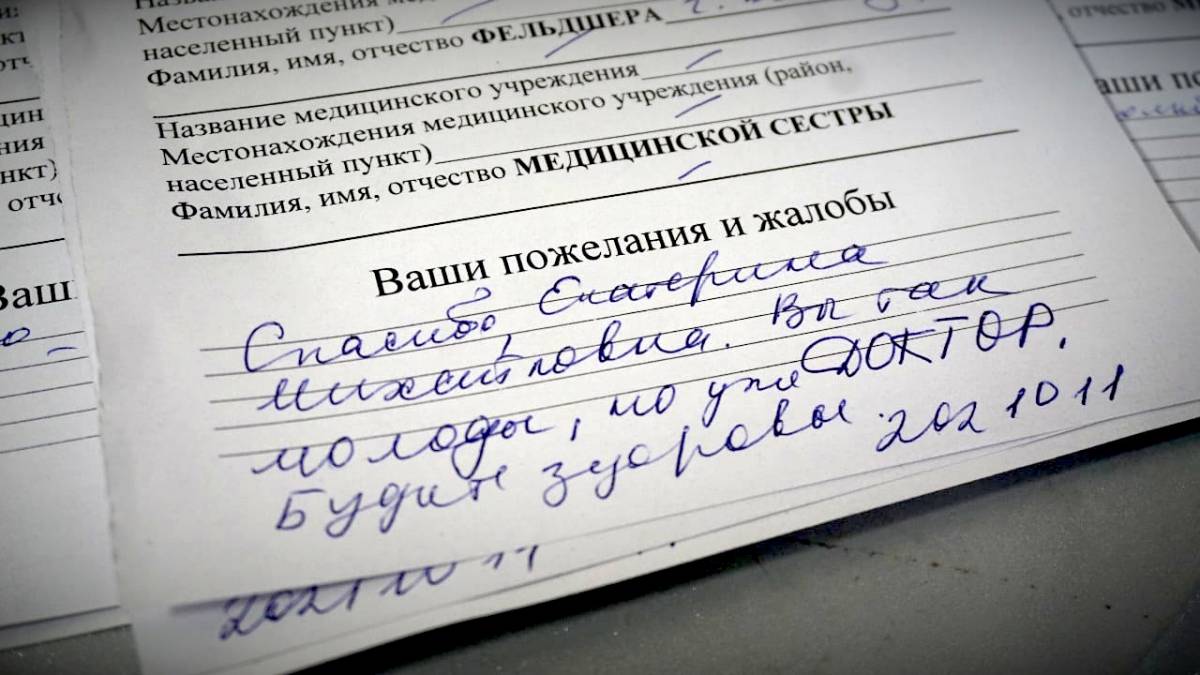 Местонахождения медицинского учреждения (район,
населенный пункт)
Фамилия, имя, отчество ФЕЛЬДШЕРА
Название медицинского учреждения
Местонахождения медицинского учреждения (район,
населенный пункт)
Фамилия, имя, отчество МЕДИЦИНСКОЙ СЕСТРЫ
Ваши пожелания и жалобы
Спасибо, Екатерина
Михайловна. Вы так
молоды, но уже ДОКТОР.
Будите здоровы. 2021 10 11
2021 10 11
нкт)
отч
Ваш
отчество